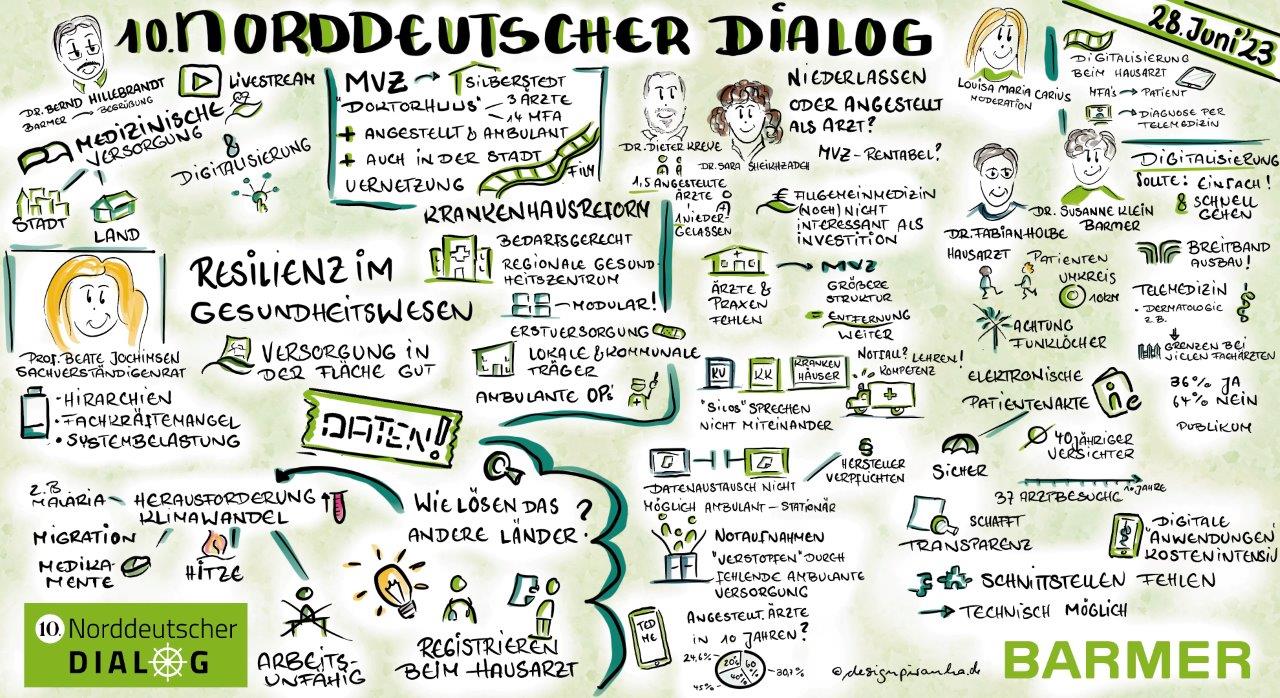 10. NORDDEUTSCHER DIALOG
28. Juni '23
DR. BERND HILLEBRANDT
BARMER → BEGRÜßUNG
LIVESTREAM
MEDIZINISCHE
VERSORGUNG
&
DIGITALISIERUNG
STADT
LAND
MVZ → SILBERSTEDT
"DOKTORHUUS" — 3 ÄRZTE
— 14 MFA
+ ANGESTELLT & AMBULANT
+ AUCH IN DER STADT
VERNETZUNG
FILM
DR. DIETER KREYE
DR. SARA SHEIKHZADEH
NIEDERLASSEN
ODER ANGESTELLT
ALS ARZT?
MVZ-RENTABEL?
1,5 ANGESTELLTE
ÄRZTE
1 NIEDER-
GELASSEN
€ ALLGEMEINMEDIZIN
(NOCH) NICHT
INTERESSANT ALS
INVESTITION
LOUISA MARIA CARIUS
MODERATION
DIGITALISIERUNG
BEIM HAUSARZT
MFA's → PATIENT
→ DIAGNOSE PER
TELEMEDIZIN
DR. FABIAN HOLBE
HAUSARZT
DR. SUSANNE KLEIN
BARMER
DIGITALISIERUNG
SOLLTE: EINFACH!
& SCHNELL
GEHEN
BREITBAND
AUSBAU!
TELEMEDIZIN
• DERMATOLOGIE
Z.B.
GRENZEN BEI
VIELEN FACHÄRZTEN
36% JA
64% NEIN
PUBLIKUM
PATIENTEN
UMKREIS
10KM
ACHTUNG
FUNKLÖCHER
ELEKTRONISCHE
PATIENTENAKTE
e
SICHER
Ø 40JÄHRIGER
VERSICHTER
37 ARZTBESUCHE
10 JAHRE
SCHAFFT
TRANSPARENZ
DIGITALE
ANWENDUNGEN
KOSTENINTENSIV
SCHNITTSTELLEN FEHLEN
→ TECHNISCH MÖGLICH
KRANKENHAUSREFORM
BEDARFSGERECHT
REGIONALE GESUND-
HEITSZENTRUM
— MODULAR!
ERSTVERSORGUNG
LOKALE & KOMMUNALE
TRÄGER
AMBULANTE OP's
PROF. BEATE JOCHIMSEN
SACHVERSTÄNDIGENRAT
RESILIENZ IM
GESUNDHEITSWESEN
VERSORGUNG IN
DER FLÄCHE GUT
• HIRARCHIEN
• FACHKRÄFTEMANGEL
• SYSTEMBELASTUNG
DATEN!
ÄRZTE &
PRAXEN
FEHLEN
→ MVZ
GRÖßERE
STRUKTUR
= ENTFERNUNG
WEITER
KV
KK
KRANKEN
HÄUSER
"SILOS" SPRECHEN
NICHT MITEINANDER
NOTFALL? LEHREN!
KOMPETENZ
DATENAUSTAUSCH NICHT
MÖGLICH AMBULANT — STATIONÄR
§
HERSTELLER
VERPFLICHTEN
NOTAUFNAHMEN
"VERSTOPFEN" DURCH
FEHLENDE AMBULANTE
VERSORGUNG
TED
ME
ANGESTELLT. ÄRZTE
IN 10 JAHREN?
24,6%
20%
60%
40%
30,7%
45%
Z.B.
MALARIA
HERAUSFORDERUNG
KLIMAWANDEL
MIGRATION
MEDIKA-
MENTE
HITZE
ARBEITS-
UNFÄHIG
WIE LÖSEN DAS
ANDERE LÄNDER?
REGISTRIEREN
BEIM HAUSARZT
10. Norddeutscher
DIALOG
©designpiranha.de
BARMER